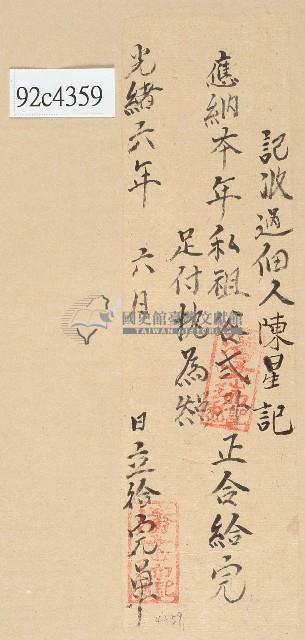 92c4359
記收過佃人陳星記
應納本年私租谷弍石正合給完
足付执為炤
光緒六年 六月 日立給完單
國史館臺灣文獻館
TAIWAN HISTORICA
4359